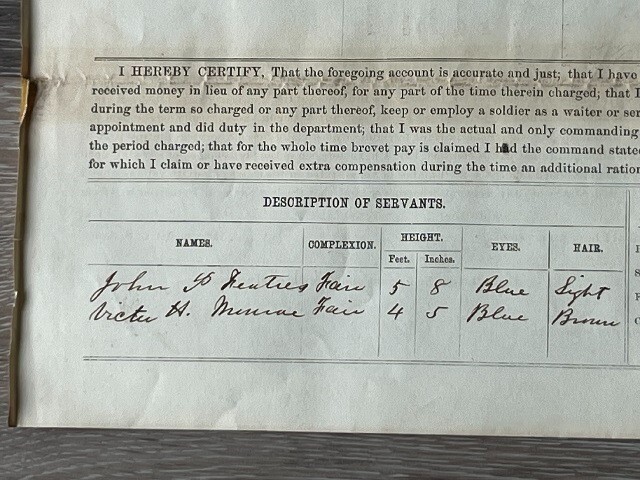 I HEREBY CERTIFY, That the foregoing account is accurate and just; that I have
received money in lieu of any part thereof, for any part of the time therein charged; that I
during the term so charged or any part thereof, keep or employ a soldier as a waiter or ser
appointment and did duty in the department; that I was the actual and only commanding
the period charged; that for the whole time brevet pay is claimed I had the command state
for which I claim or have received extra compensation during the time an additional ration
DESCRIPTION OF SERVANTS.
NAMES. COMPLEXION. HEIGHT. EYES. HAIR.
Feet. Inches.
John Fair 5 8 Blue Light
Victor H. Monroe Fair 4 5 Blue Brown